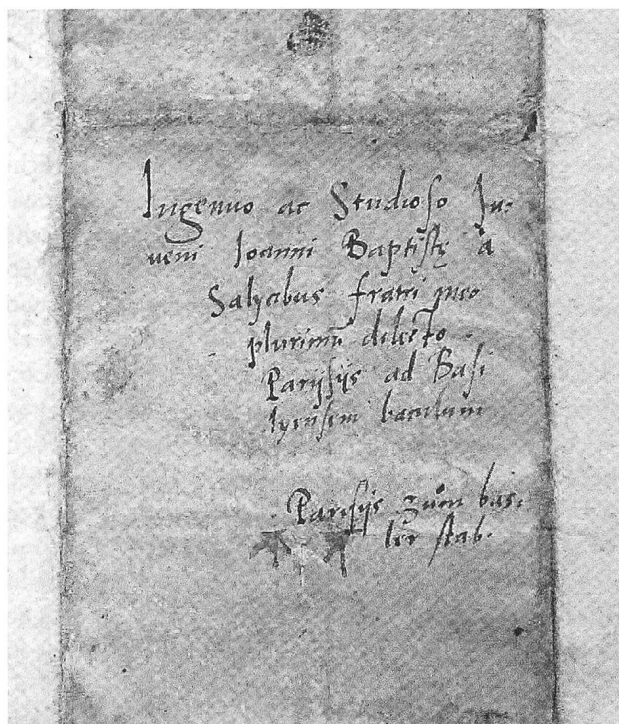 Ingenuo ac Studioso Ju:
veni Joanni Baptistę à
Salycibus fratri meo
plurimũ dilecto.
Parijsijs ad Basi
lyensem baculum
Parisijs zům bas:
ler stab.